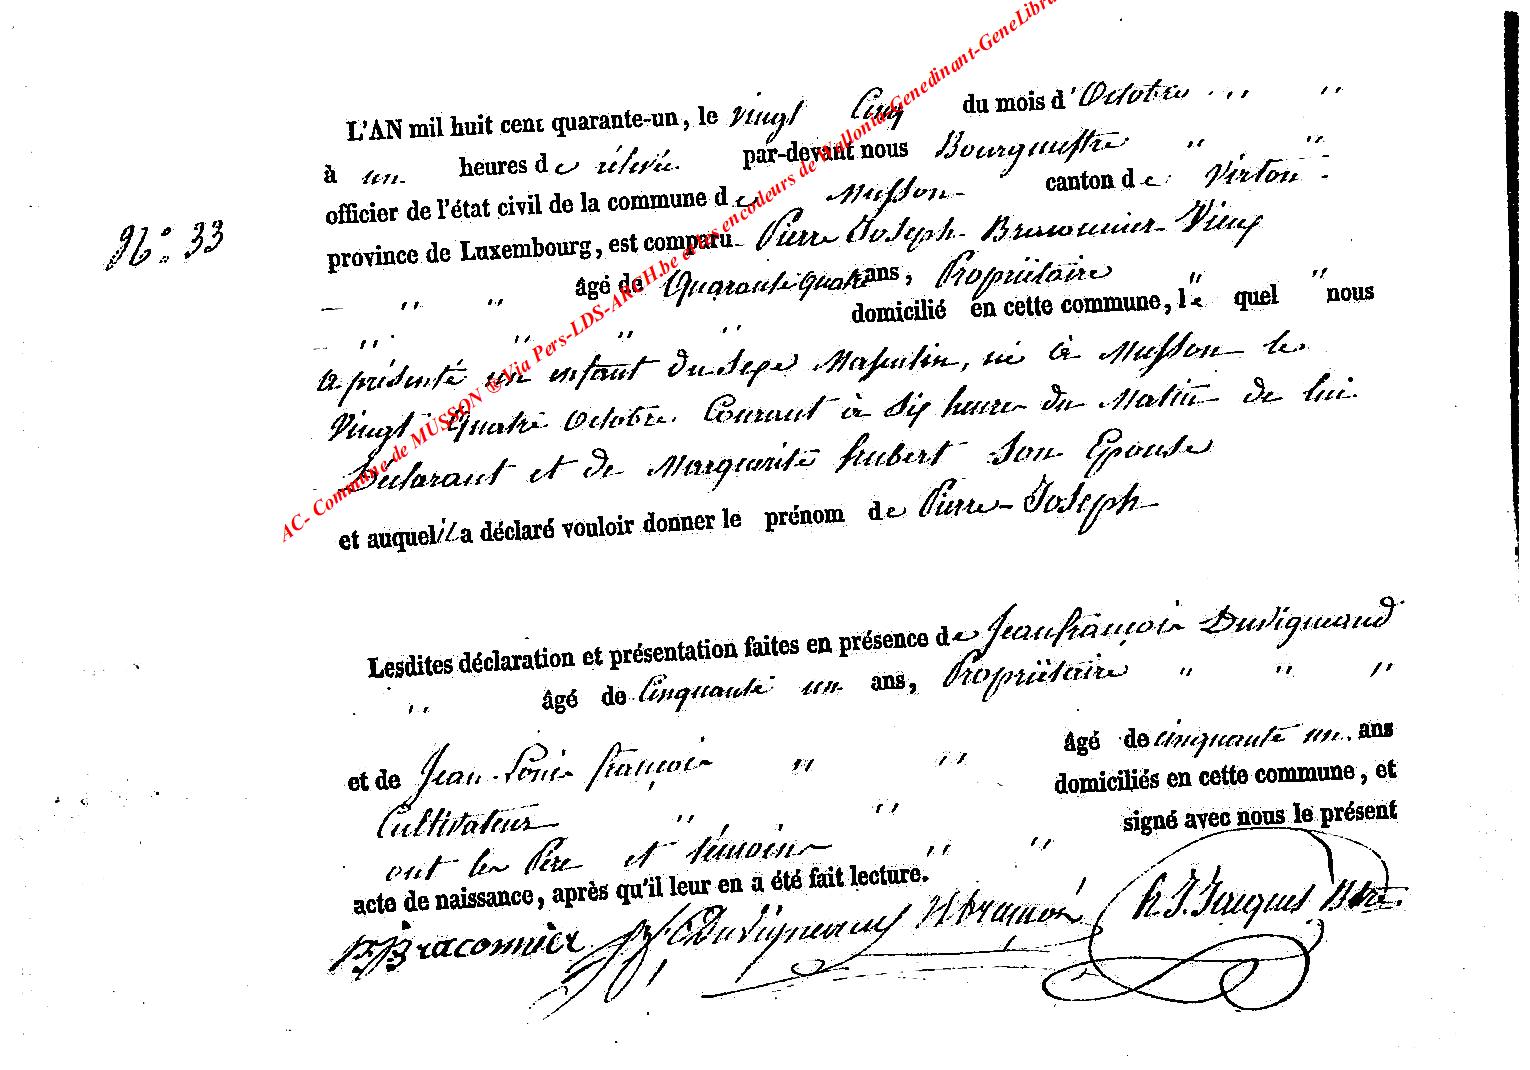 AC- Commune de MUSSON ® Via Pers-LDS-ARCH.be et les encodeurs de Wallonia-Genedinant-GeneLibra
N.° 33
L'AN mil huit cent quarante-un, le vingt Cinq du mois d' Octobre " "
à un heures de rélevée par-devant nous Bourguestre " "
officier de l'état civil de la commune de Musson canton de Virton
province de Luxembourg, est comparu Pierre Joseph Braconnier Vieux
" " âgé de Quarante quatre ans, Propriétaire " "
" " " " domicilié en cette commune, le quel nous
a présenté un enfant du Sexe Masculin, né à Musson le
Vingt Quatre Octobre Courant à Six heures du Matin de lui
Declarant et de Marguerite hubert Son Epouse
et auquel il a déclaré vouloir donner le prénom de Pierre-Joseph
Lesdites déclaration et présentation faites en présence de Jean françois Duvigneaud
" âgé de Cinquante un ans, Propriétaire " " "
et de Jean-Louis françois " " âgé de cinquante un ans
Cultivateur " " domiciliés en cette commune, et
ont les Père et témoins " " signé avec nous le présent
acte de naissance, après qu'il leur en a été fait lecture.
Braconnier Duvigneaud françois Jacques